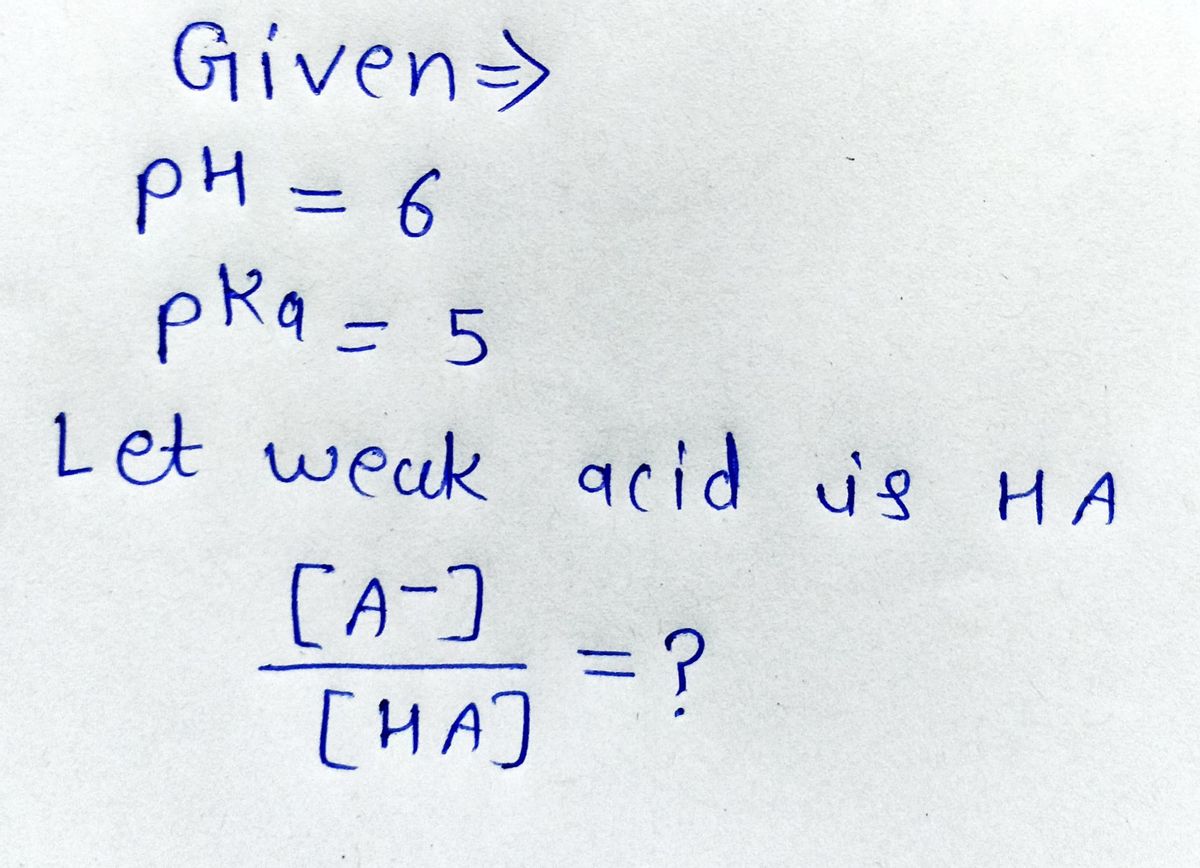 Given⇒
pH = 6
pKa = 5
Let weak acid is HA
[A-]
[HA] = ?